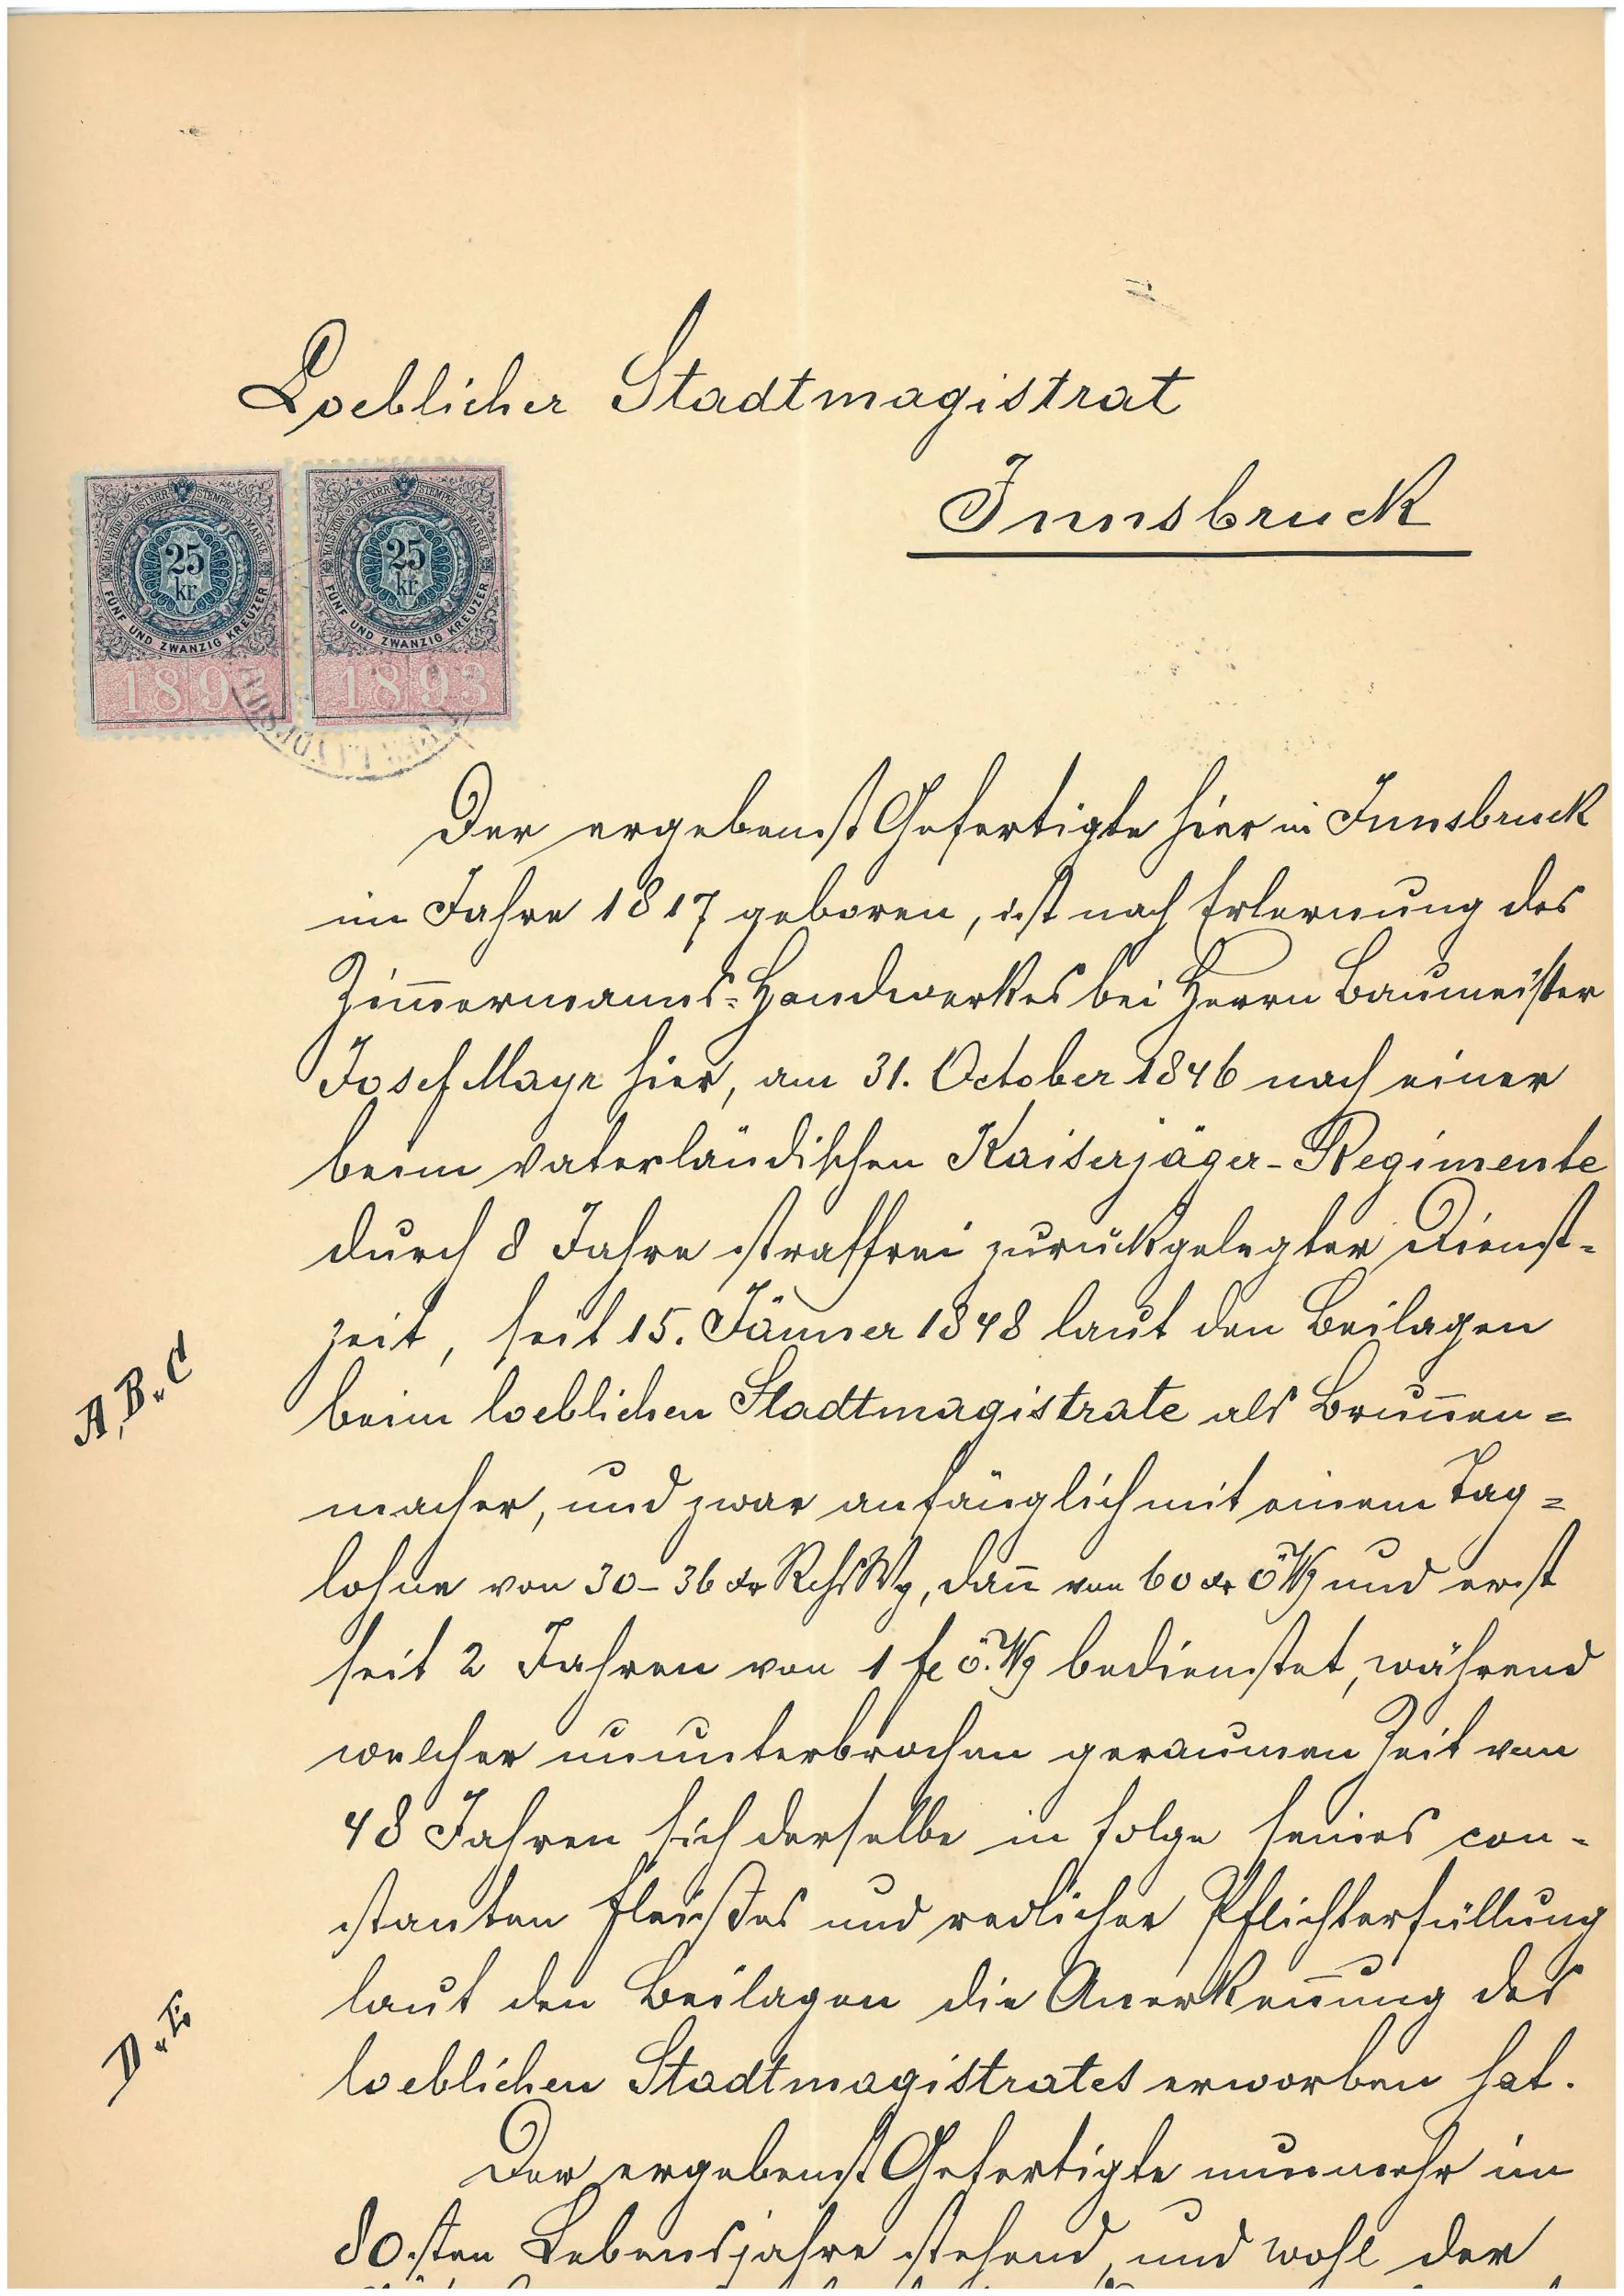 Loeblicher Stadtmagistrat
Innsbruck
KAIS. KÖN. ÖSTERR. STEMPEL-MARKE
25
kr
FÜNF UND ZWANZIG KREUZER
1893
KAIS. KÖN. ÖSTERR. STEMPEL-MARKE
25
kr
FÜNF UND ZWANZIG KREUZER
1893
Der ergebenst Gefertigte hier in Innsbruck
im Jahre 1817 geboren, ist nach Erlernung des
Zim̄ermanns-Handwerkes bei Herrn Baumeister
Josef Mayr hier, am 31. October 1846 nach einer
beim vaterländischen Kaiserjäger-Regimente
durch 8 Jahre straffrei zurückgelegter Dienst-
zeit, seit 15. Jänner 1848 laut den Beilagen
A, B u C
beim loeblichen Stadtmagistrate als Brun̄en-
macher, und zwar anfänglich mit einem Tag-
lohne von 30-36 kr RchsWg, dan̄ von 60 kr ö Wg und erst
seit 2 Jahren von 1 fl ö. Wg bedienstet, während
welcher ununterbrochen geraumen Zeit von
48 Jahren sich derselbe in Folge seines con-
stanten Fleißes und redlicher Pflichterfüllung
laut den Beilagen die Anerken̄ung des
D u E
loeblichen Stadtmagistrates erworben hat.
Der ergebenst Gefertigte nunmehr im
80.sten Lebensjahre stehend, und wohl der